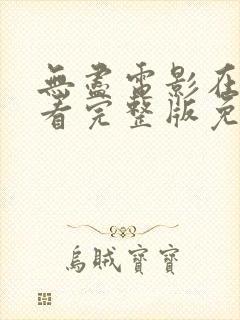 無盡電影在
看完整版免
烏賊寶寶